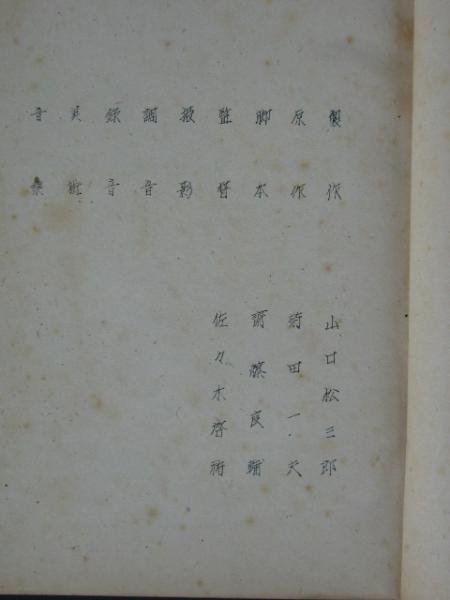 製作 山口松三郎
原作 田一夫
脚本 斎藤良輔
監督 佐々木啓祐
撮影
調音
録音
美術
音楽